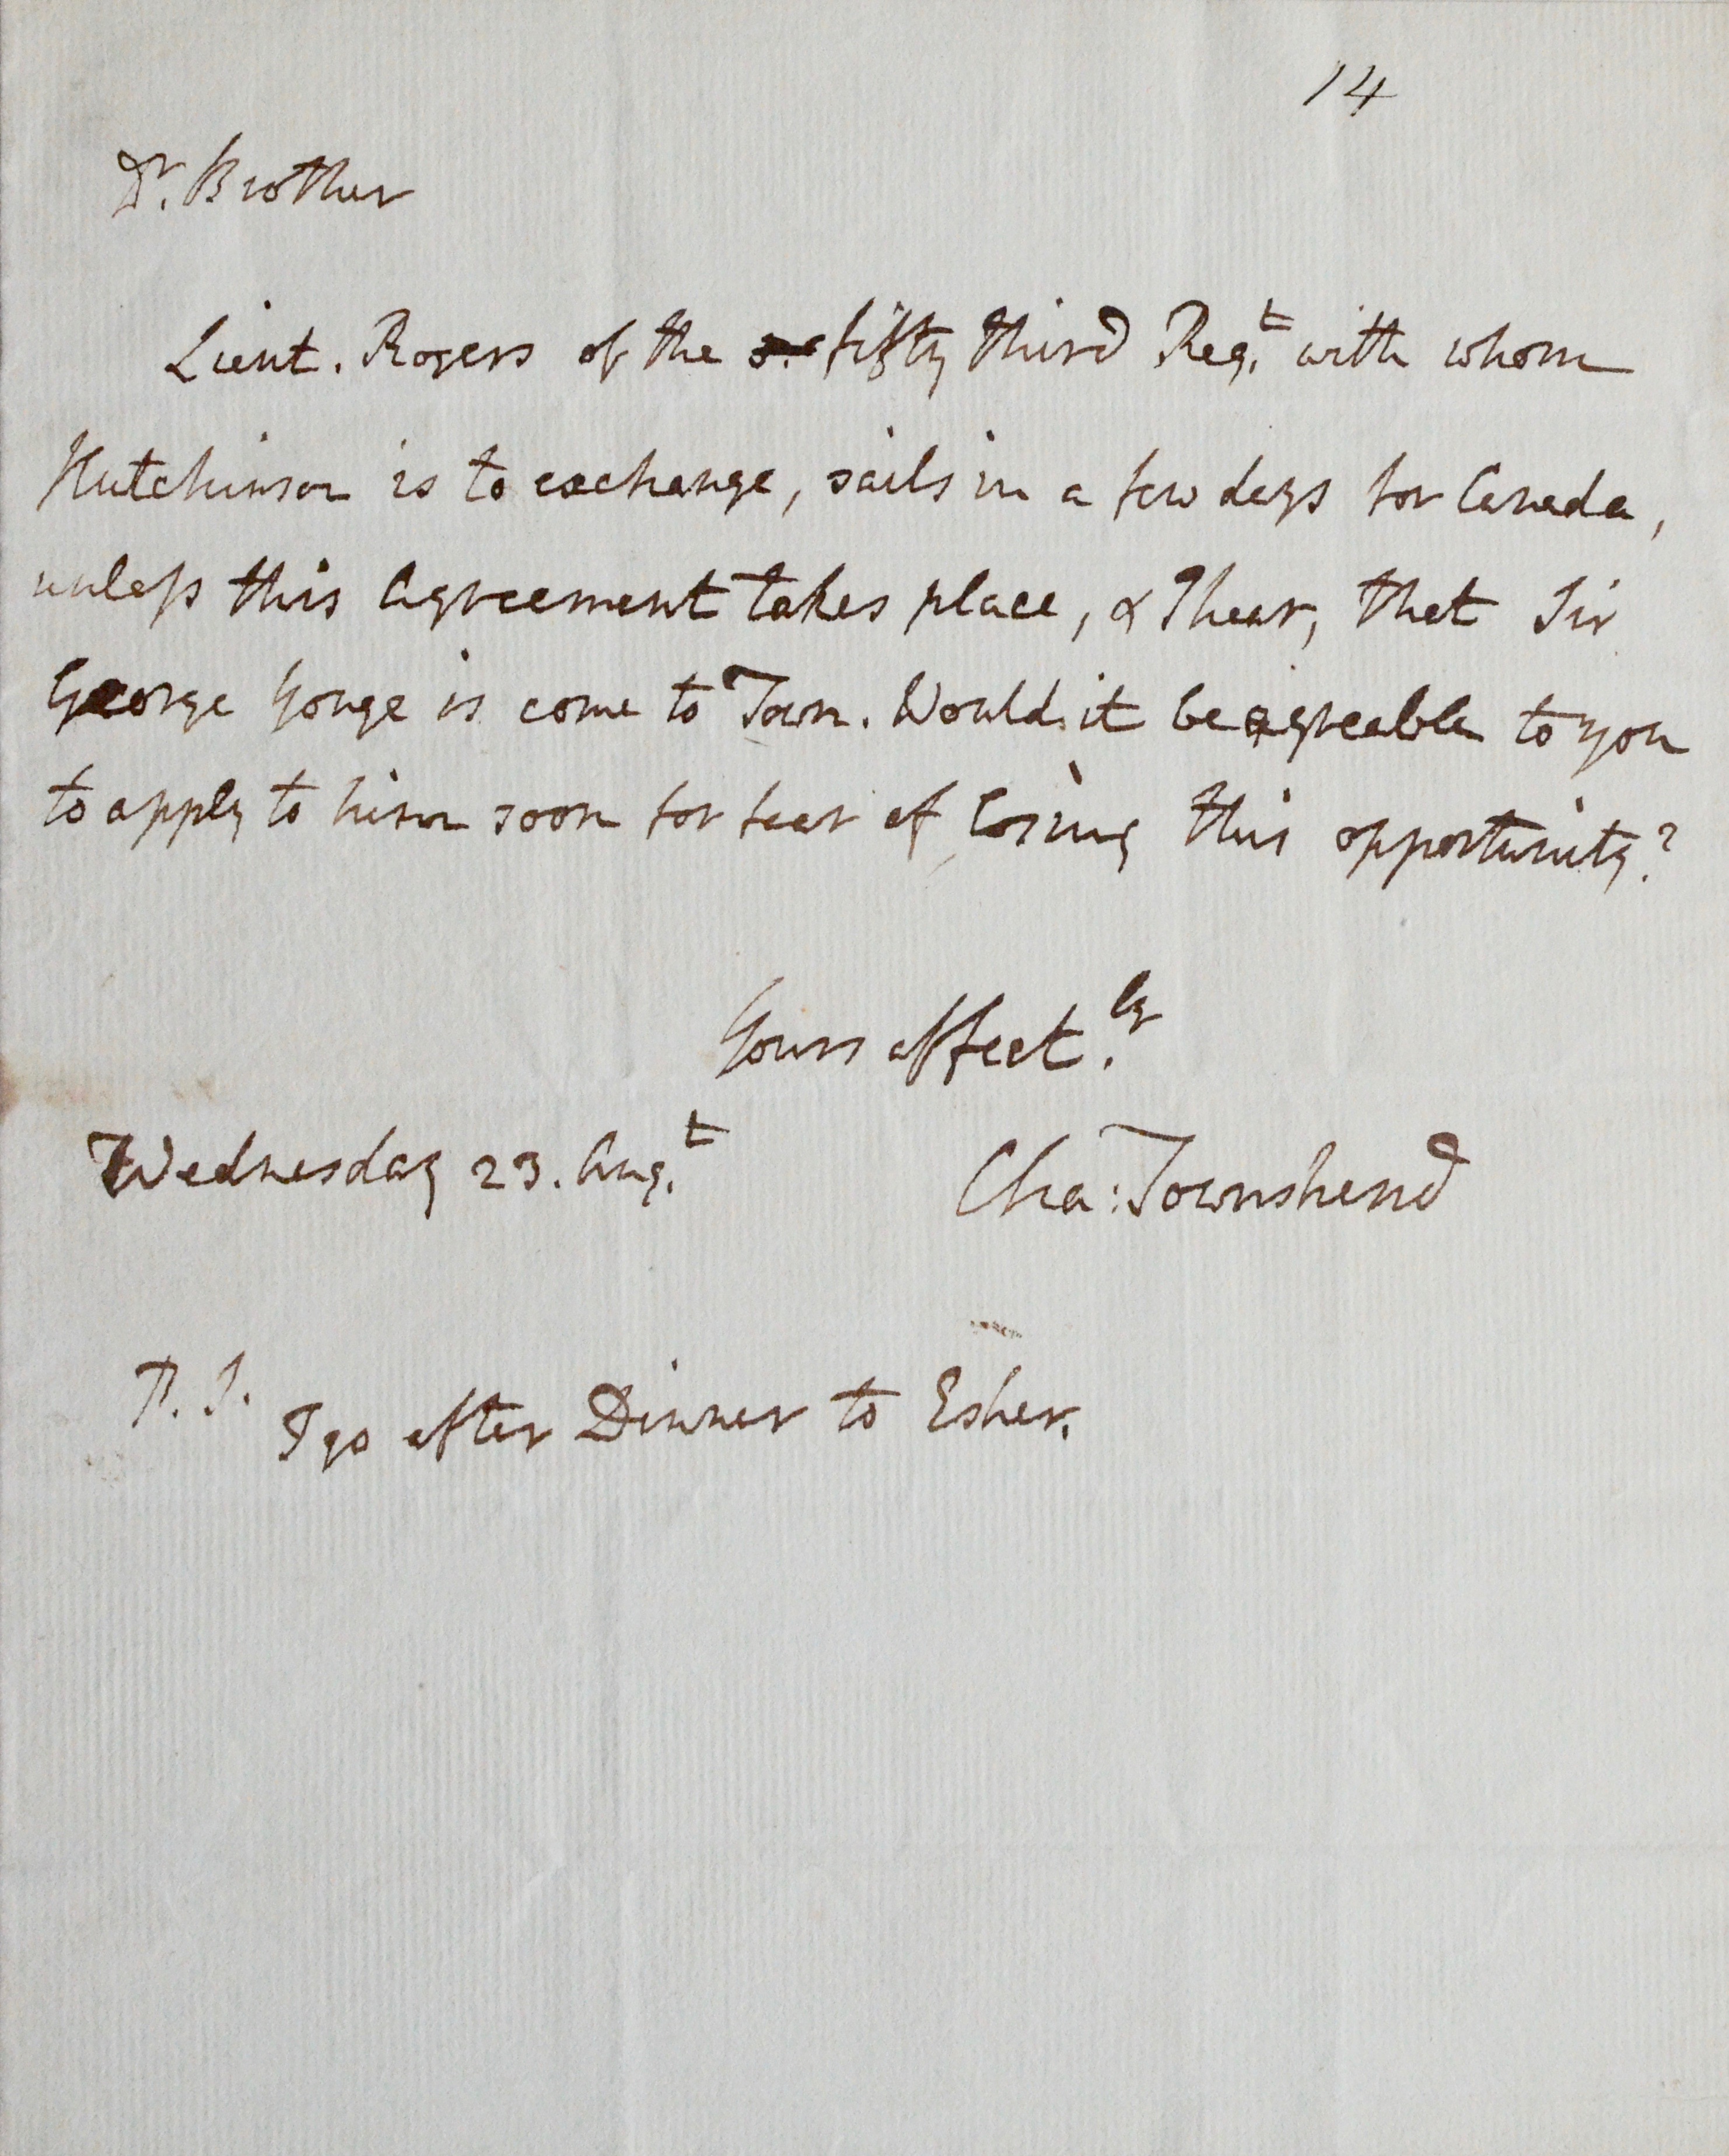 14
Dr. Brother
Lieut. Rogers of the fifty third Regt. with whom
Hutchinson is to exchange, sails in a few days for Canada,
unless this Agreement takes place, & I hear, that Sir
George Yonge is come to Town. Would it be agreable to you
to apply to him soon for fear of losing this opportunity?
Yours affect.ly
Wednesday 23. Augt.
Cha: Townshend
P.S. I go after Dinner to Esher.